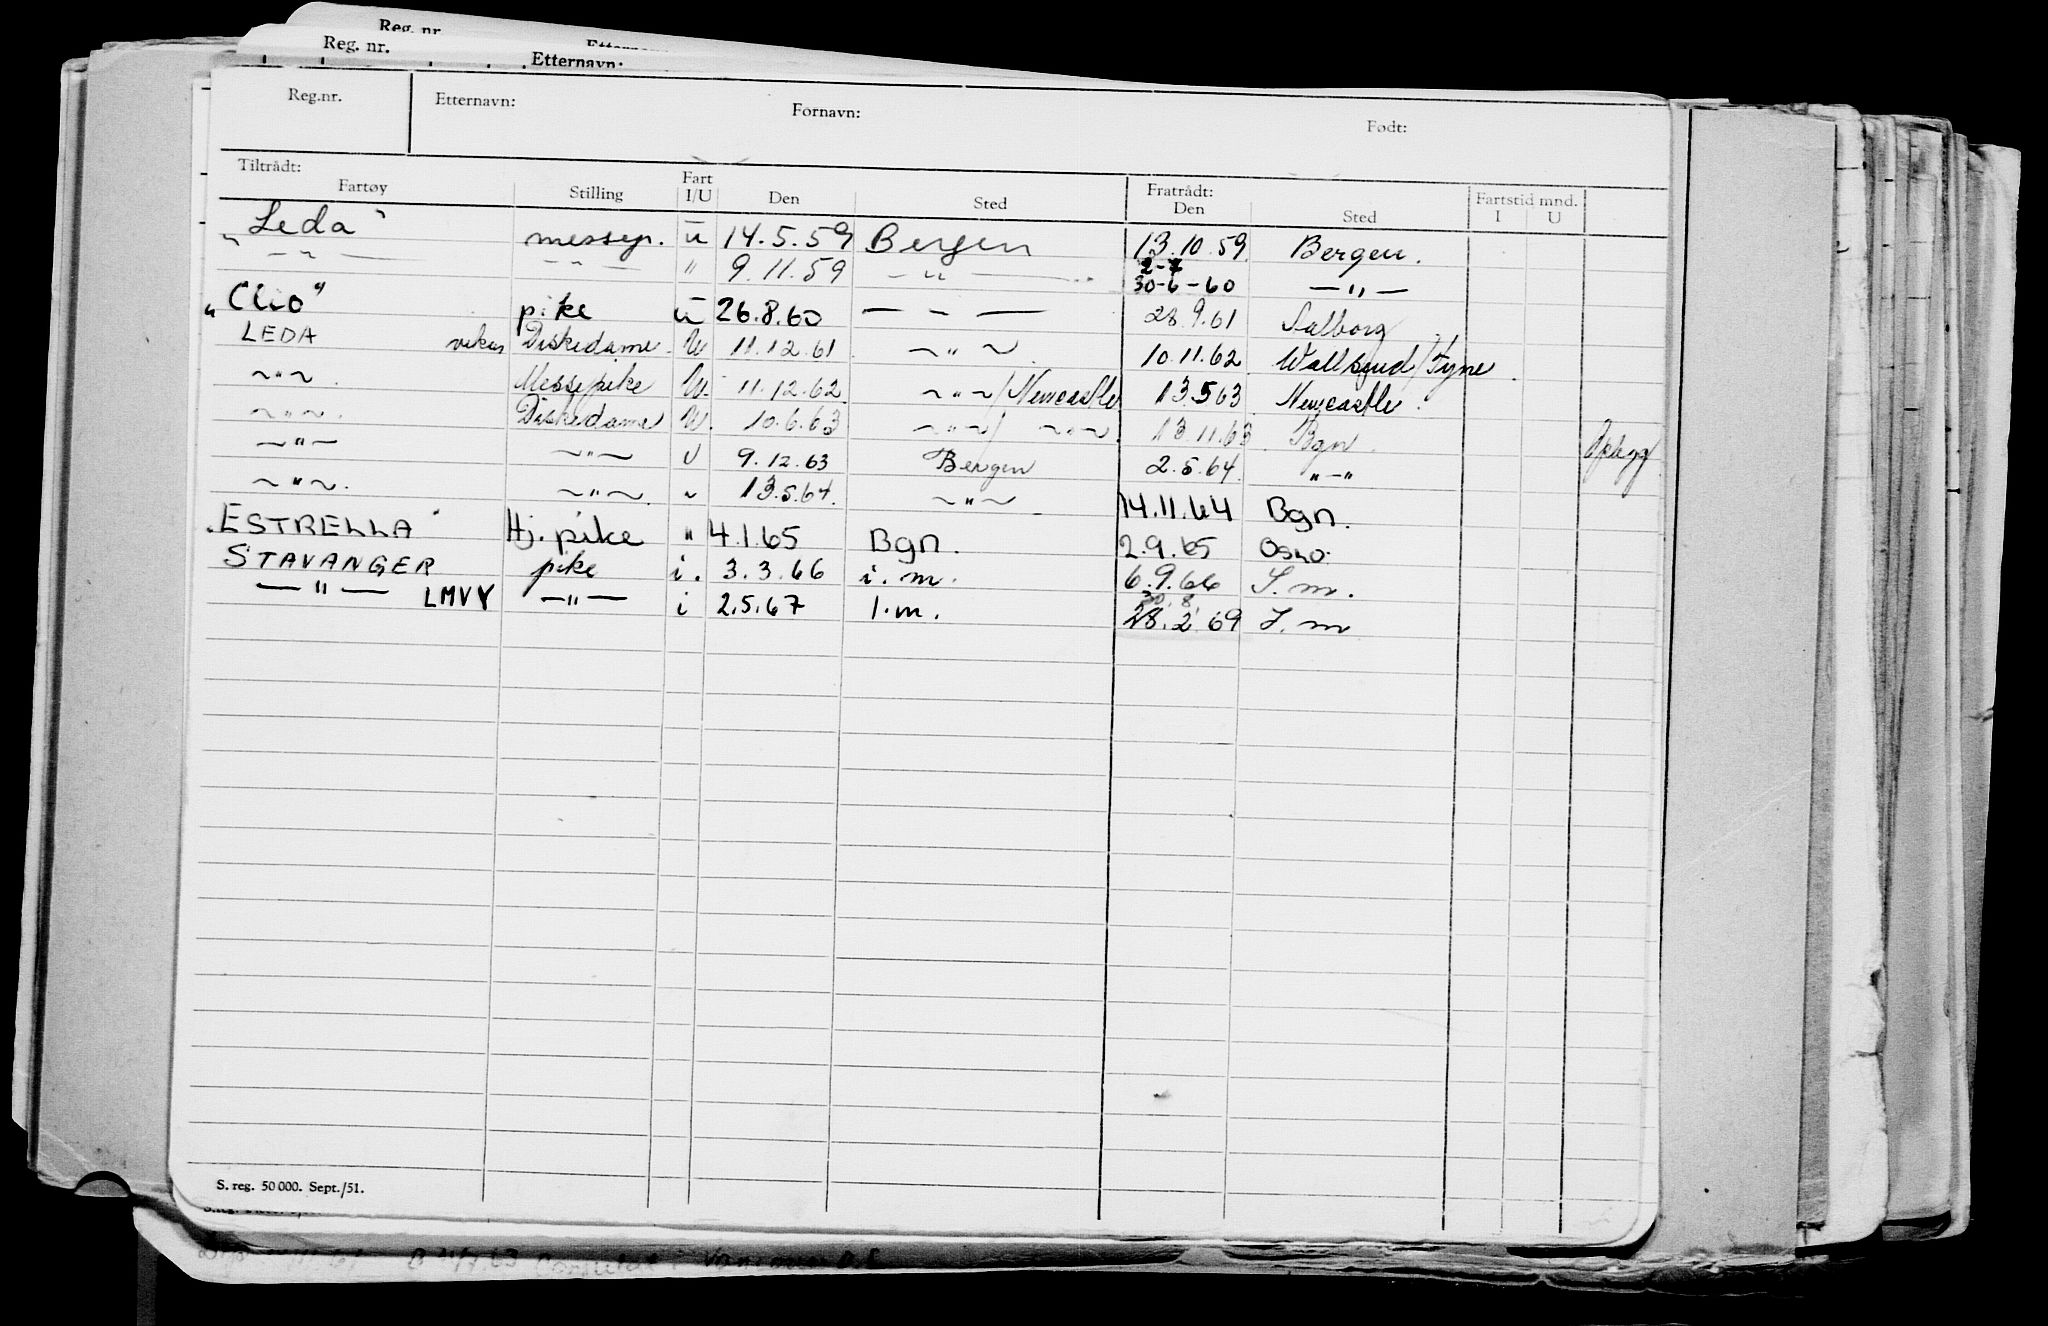 Reg. nr.
Reg. nr.
Etternavn:
Reg.nr. Etternavn: Fornavn: Født:
Tiltrådt: Fart Fratrådt: Fartstid mnd.
Fartøy Stilling I/U Den Sted Den Sted I U
„Leda" messep. u 14.5.59 Bergen 13.10.59 Bergen.
— " — — " — " 9.11.59 — " — 2-7 30-6-60 — " —
„Clio" pike u 26.8.60 — - — 28.9.61 Aalborg
LEDA vikar Diskedame U 11.12.61 ~ " ~ 10.11.62 Wallsend/Tyne
~ " ~ Messepike U. 11.12.62 ~ " ~ / Newcastle 13.5 63 Newcastle.
~ " ~. Diskedame U. 10.6.63 ~ " ~ / ~ " ~. 13.11.63 Bgn.
— " — ~ " ~ U 9.12.63 Bergen 2.5.64. " — "
~ " ~. ~ " ~. " 13.5.64. ~ " ~ 14.11.64 Bgn.
„ESTRELLA" Hj. pike " 4.1.65 Bgn. 2.9.65 Oslo.
STAVANGER pike i. 3.3.66 i. m. 6.9.66 I. m.
— " — LMVY — " — i 2.5.67 I.m. 30.8. 28.2.69 I. m
S. reg. 50 000. Sept./51.